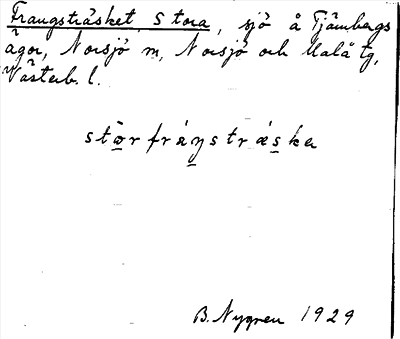 Frangsträsket, Stora, sjö å Tjärnbergs
ägor, Norsjö sn, Norsjö och Malå tg,
Västerb. l.
stōrfráŋsträska
B. Nygren 1929